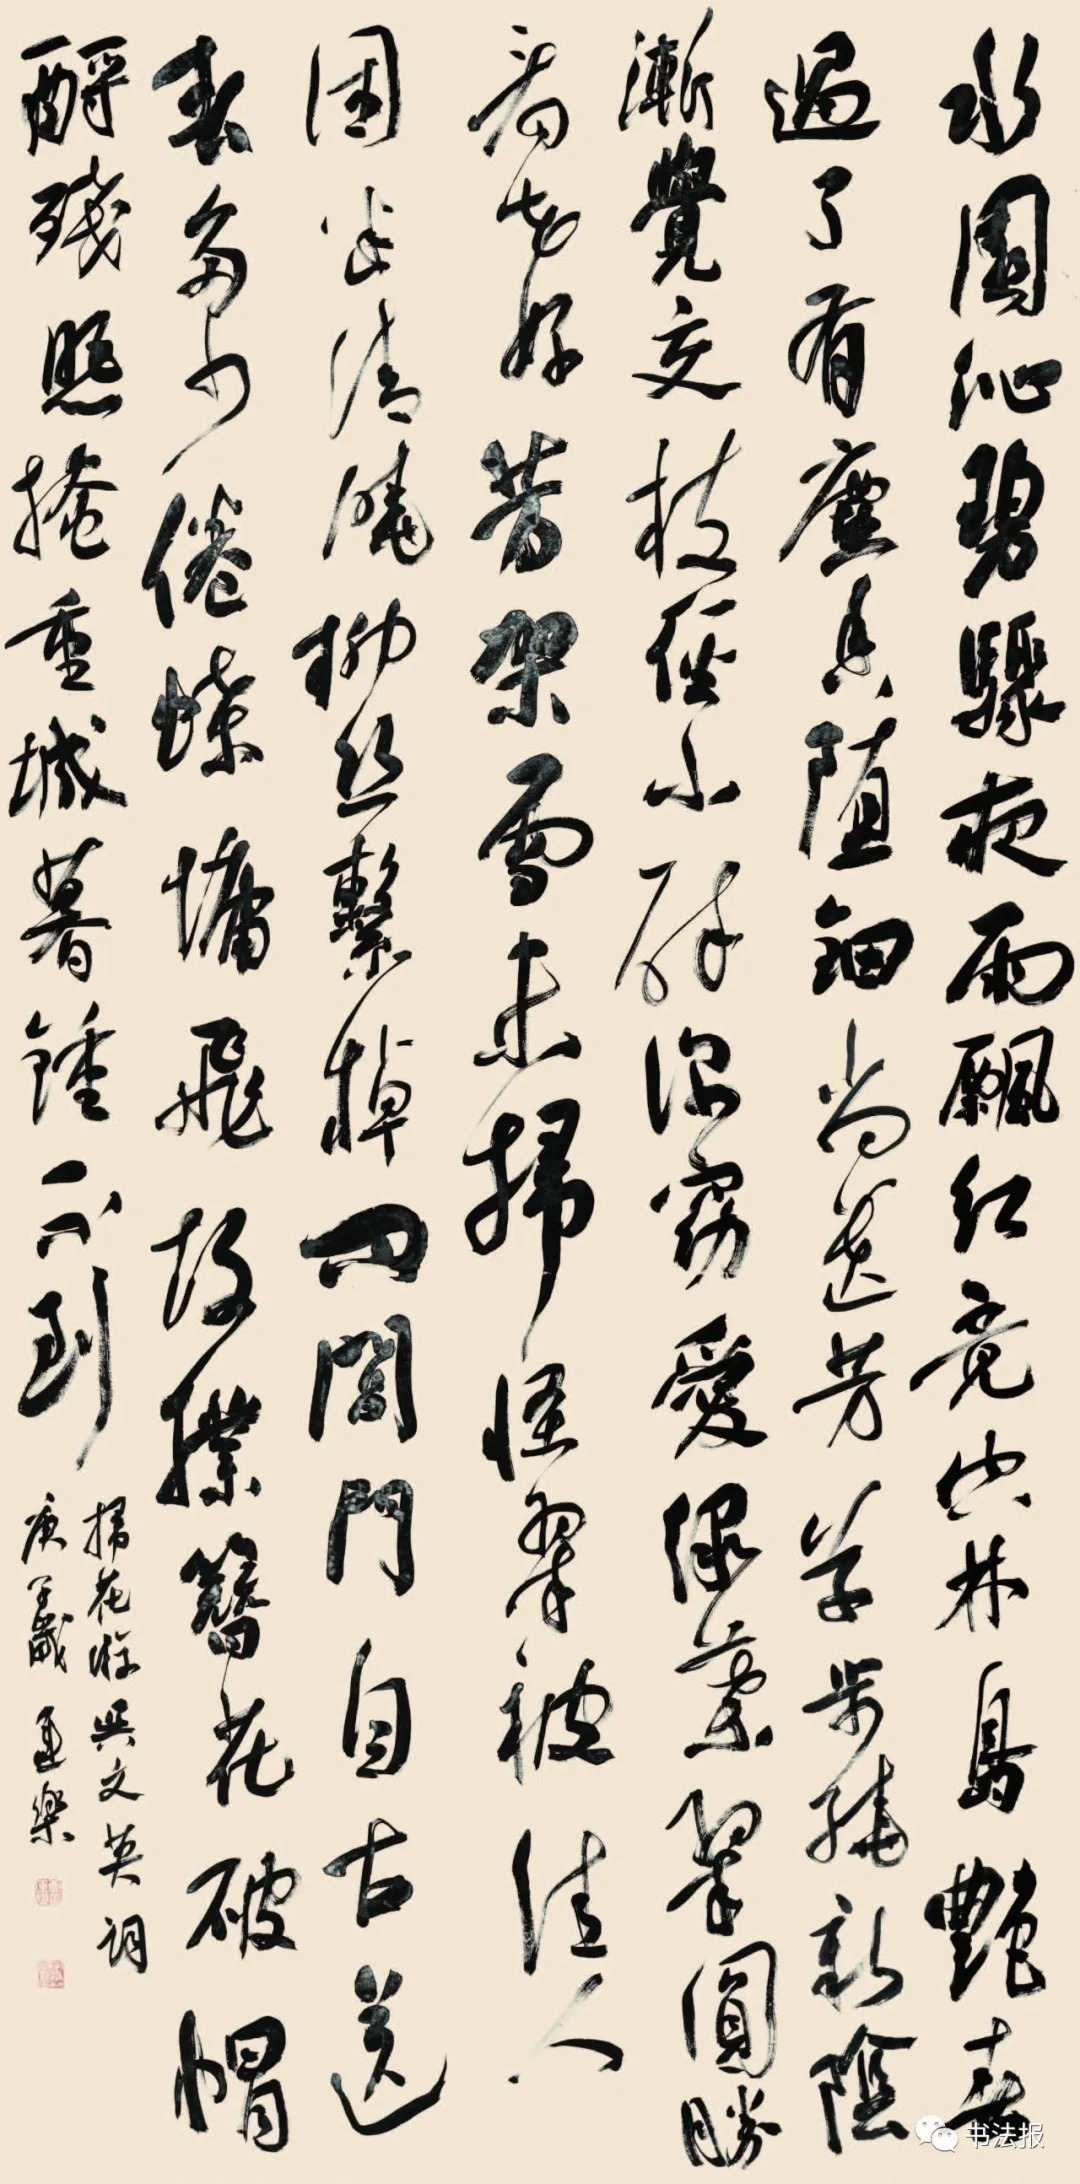 水園沁碧驟夜雨飄紅竟空林島艷春
過了有塵香墮鈿尚遺芳草步繞新陰
漸覺交枝徑小醉深窈愛綠葉翠圓勝
看花好芳架雪未掃怪翠被佳人
困迷清曉柳絲繫棹問閶門自古送
春多少倦蝶慵飛故撲簪花破帽
酹殘照掩重城暮鍾不到
掃花游吳文英詞
庚子歲
书法报